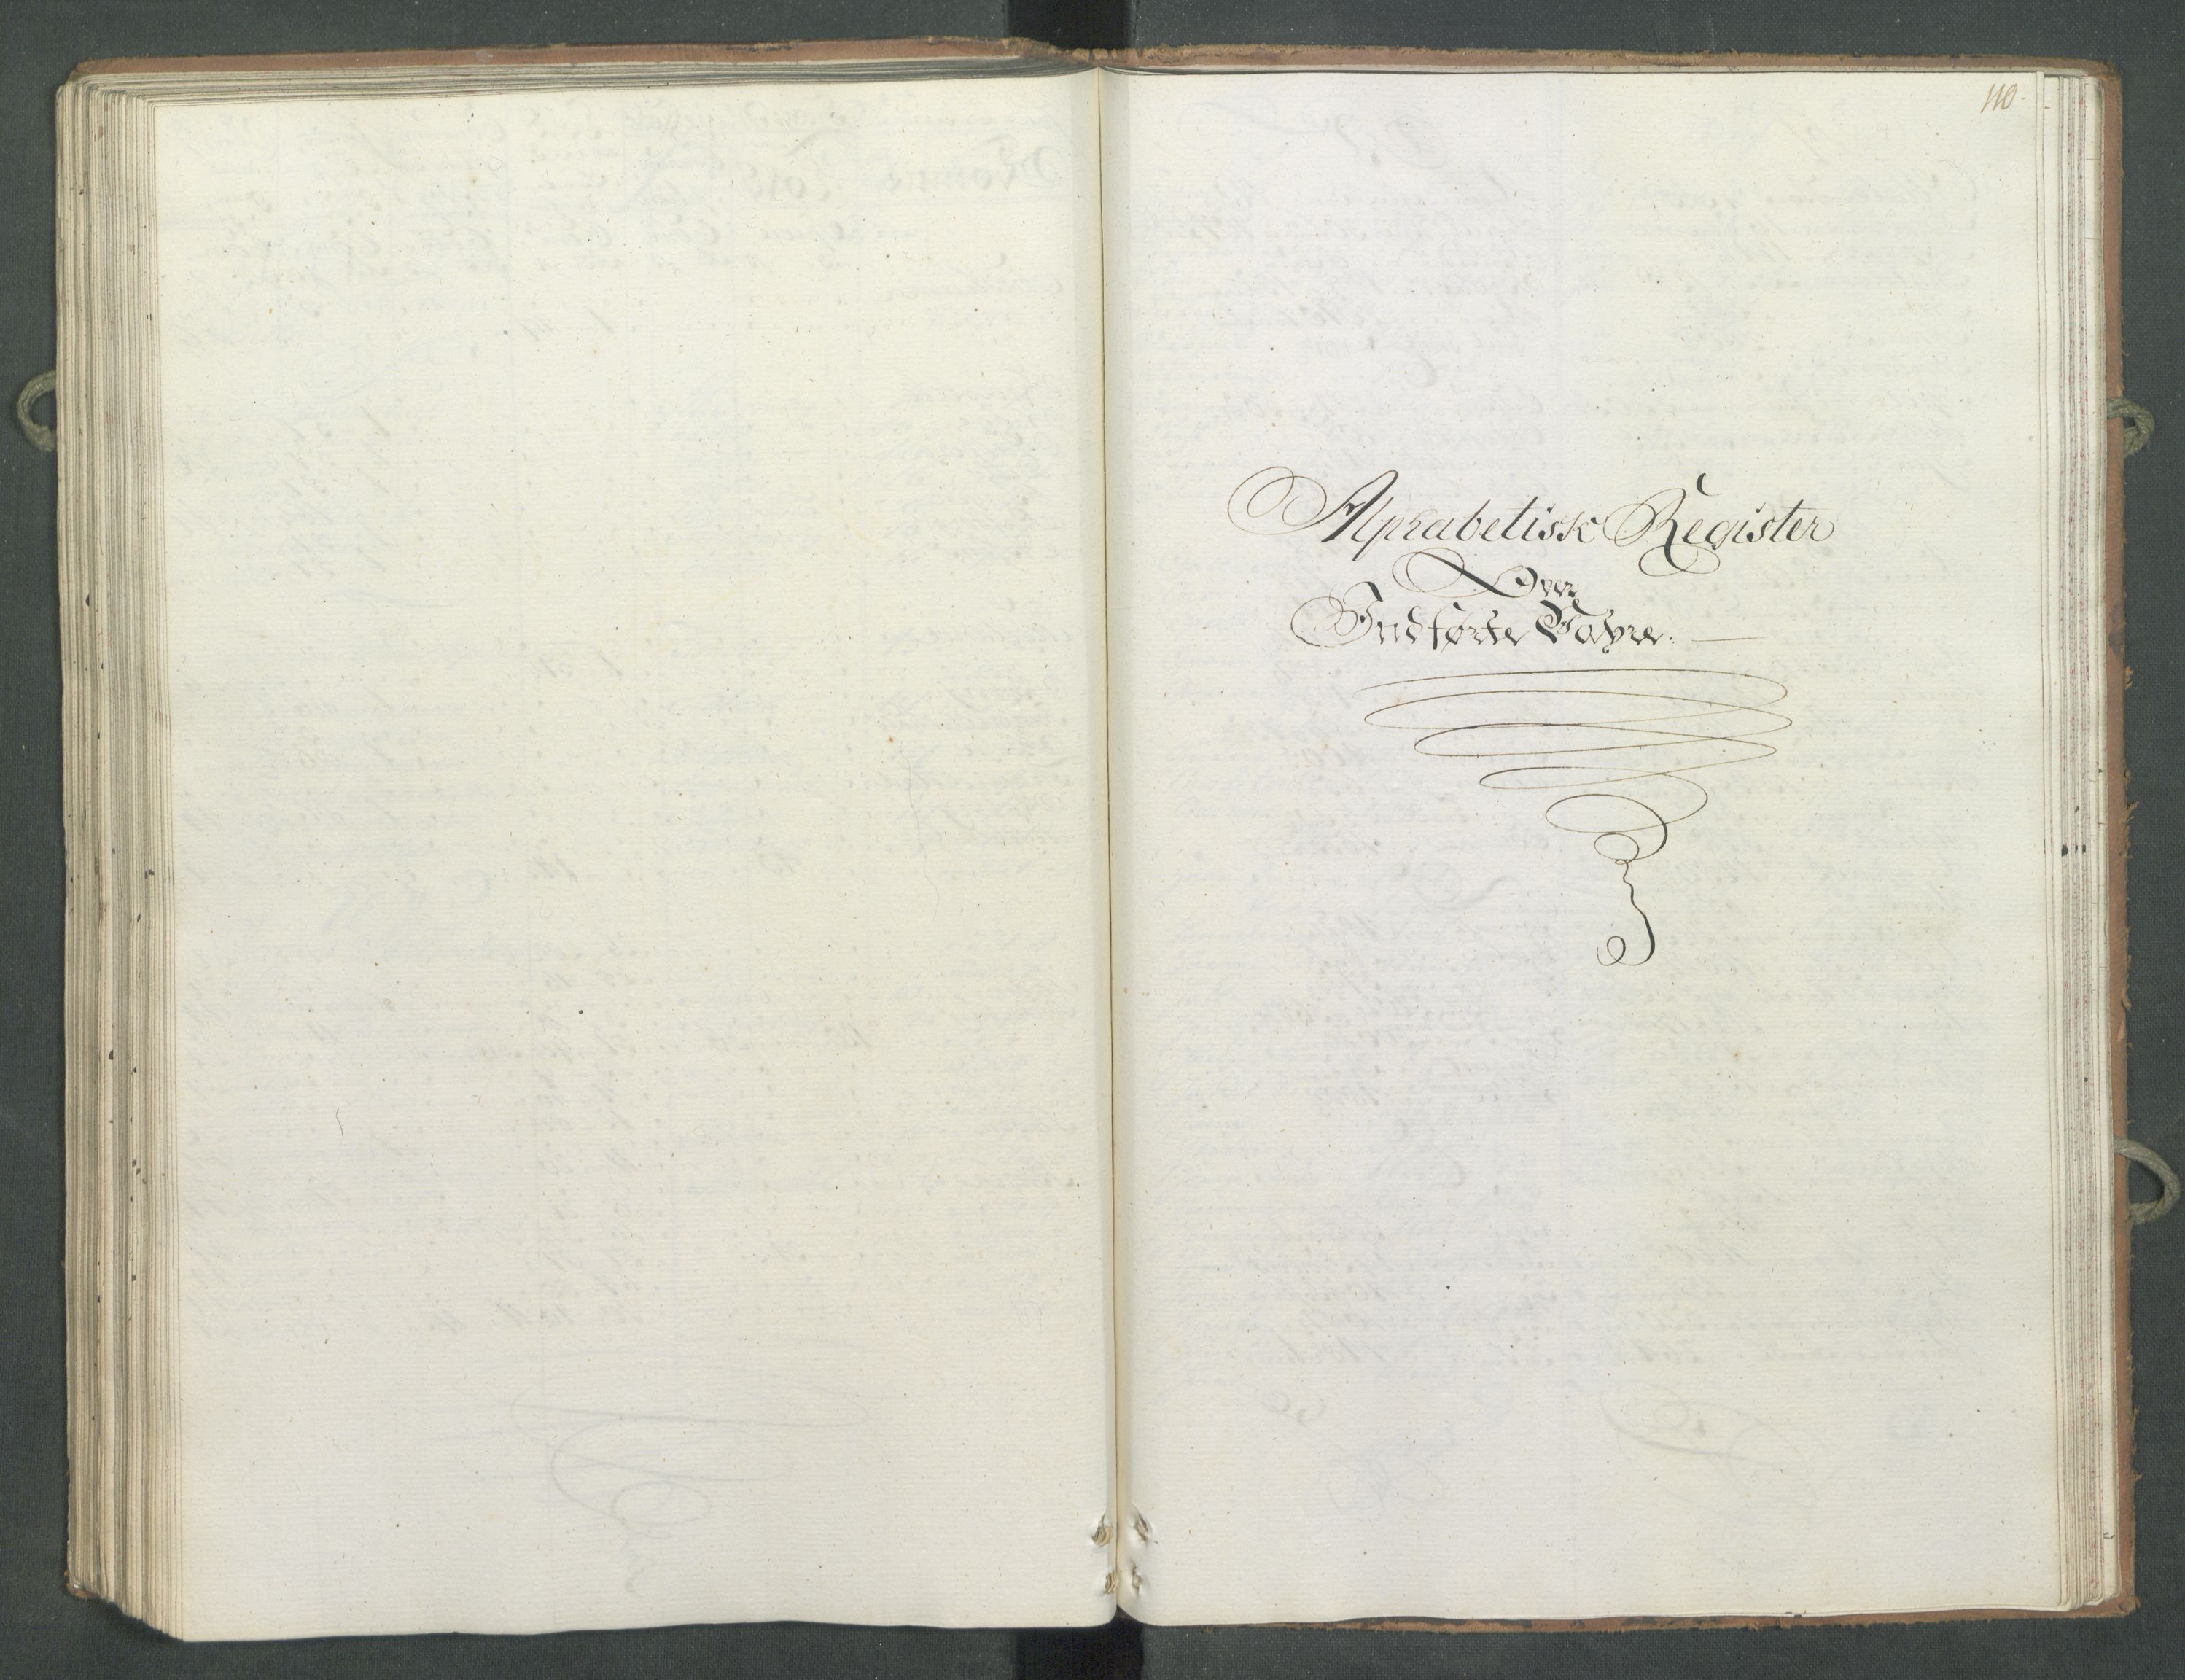 110.
Alphabetisk Register
Over
Indførte Vahre.